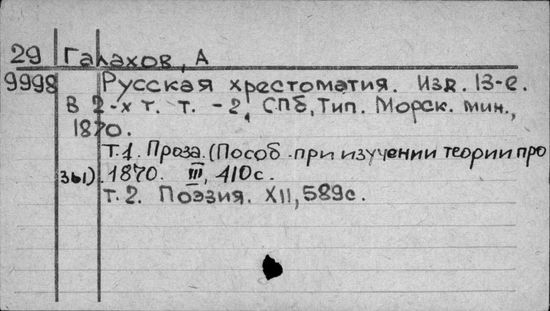 29 Галахов, А
9998 Русская хрестоматия. Изд. 13-е.
В 2-х т. т. -2, СПб, Тип. Морск. мин.,
1870.
Т.1. Проза. (Пособ. при изучении теории про
зы). 1870. III, 410с.
Т.2. Поэзия. XII, 589с.